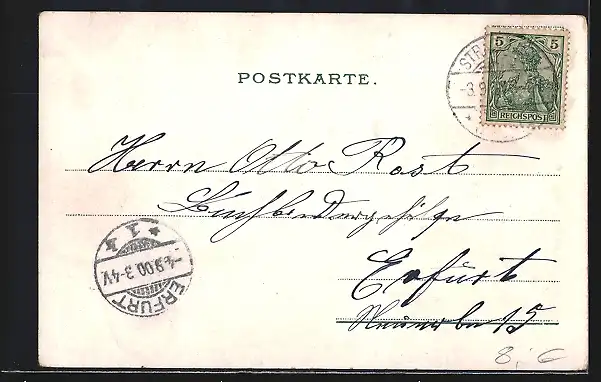 5 5
REICHSPOST
STR
-3.9
POSTKARTE.
Herrn Otto Rost
Buchbindergehilfe
Erfurt
15
* 1 *
-4.9.00.3-4V.
ERFURT
8,-6